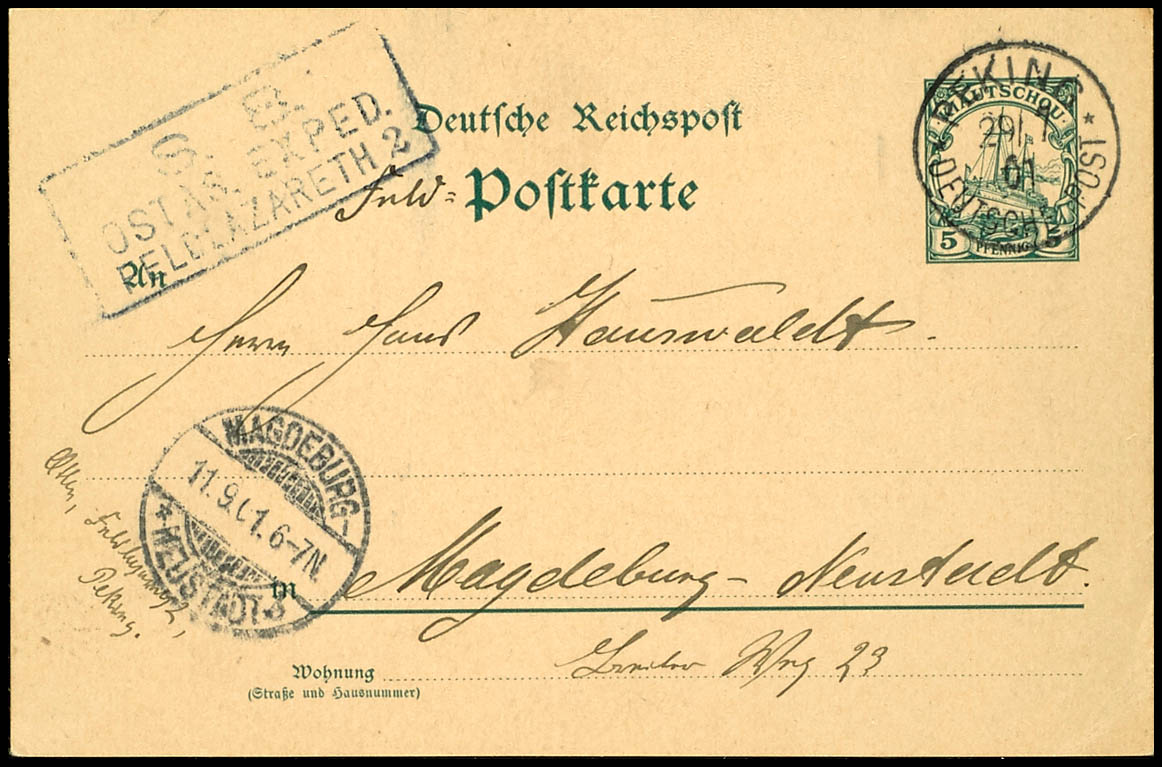 S. B.
OSTAS. EXPED.
FELDLAZARETH 2
Deutsche Reichspost
Feld= Postkarte
KIAUTSCHOU
5 PFENNIG 5
PEKING
29/7
01
* DEUTSCHE POST *
An
Herrn Hans Hauswaldt.
MAGDEBURG-
11.9.01.6-7N.
* NEUSTADT *
Peking.
in Magdeburg- Neustadt.
Breiter Weg 23
Wohnung
(Straße und Hausnummer)